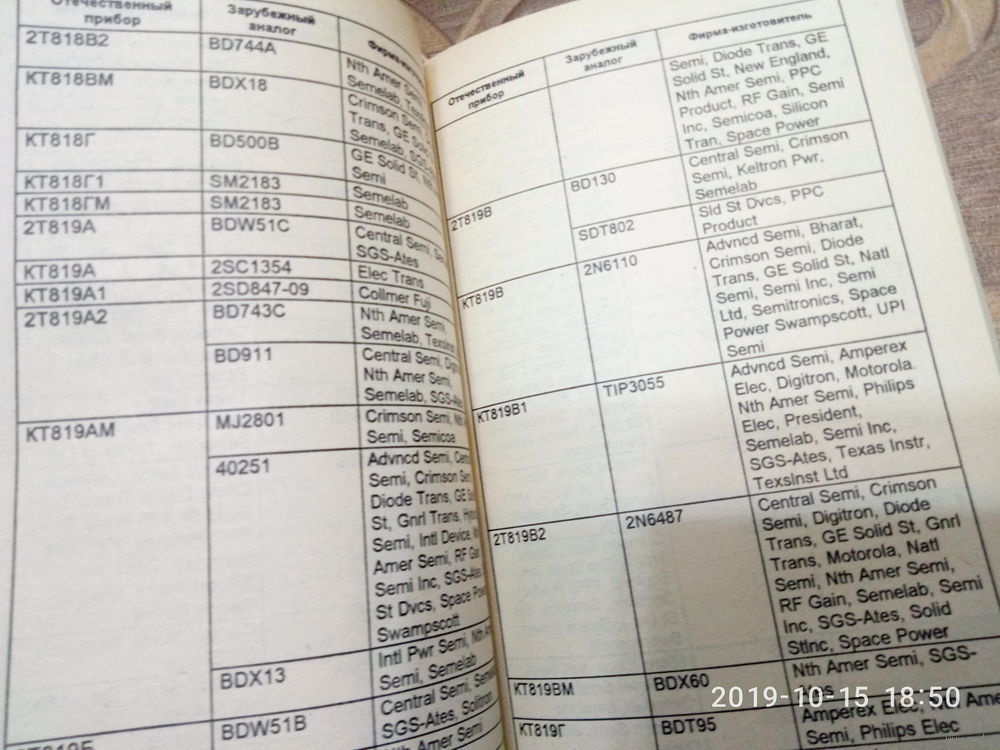 Отечественный прибор
Зарубежный аналог
2Т818В2
BD744A
Nth Amer
Semelab,
КТ818ВМ
BDX18
Crimson
Trans, GE
Semelab,
КТ818Г
BD500B
GE Solid St,
Semi
КТ818Г1
SM2183
Semelab
КТ818ГМ
SM2183
Semelab
2Т819А
BDW51C
Central Semi,
SGS-Ates
КТ819А
2SC1354
Elec Trans
КТ819А1
2SD847-09
Collmer Fuji
2Т819А2
BD743C
Nth Amer Semi,
Semelab,
BD911
Central Semi,
Nth Amer Semi,
Semelab,
КТ819АМ
MJ2801
Crimson Semi,
Semi, Semicoa
40251
Advncd Semi,
Semi, Crimson
Diode Trans, GE
St, Gnrl Trans,
Semi, Intl Device,
Amer Semi, RF
Semi Inc, SGS-Ates
St Dvcs, Space
Swampscott
BDX13
Intl Pwr Semi,
Semi, Semelab
BDW51B
Central Semi,
SGS-Ates,
Отечественный прибор
Зарубежный аналог
Фирма-изготовитель
Semi, Diode Trans, GE
Solid St, New England,
Nth Amer Semi, PPC
Product, RF Gain, Semi
Inc, Semicoa, Silicon
Tran, Space Power
2Т819В
BD130
Central Semi, Crimson
Semi, Keltron Pwr,
Semelab
SDT802
Sld St Dvcs, PPC
Product
КТ819В
2N6110
Advncd Semi, Bharat,
Crimson Semi, Diode
Trans, GE Solid St, Natl
Semi, Semi Inc, Semi
Ltd, Semitronics, Space
Power Swampscott, UPI
Semi
КТ819В1
TIP3055
Advncd Semi, Amperex
Elec, Digitron, Motorola.
Nth Amer Semi, Philips
Elec, President,
Semelab, Semi Inc,
SGS-Ates, Texas Instr,
TexsInst Ltd
2Т819В2
2N6487
Central Semi, Crimson
Semi, Digitron, Diode
Trans, GE Solid St, Gnrl
Trans, Motorola, Natl
Semi, Nth Amer Semi,
RF Gain, Semelab, Semi
Inc, SGS-Ates, Solid
StInc, Space Power
КТ819ВМ
BDX60
Nth Amer Semi, SGS-
КТ819Г
BDT95
Amperex
Semi, Philips Elec
2019-10-15 18:50